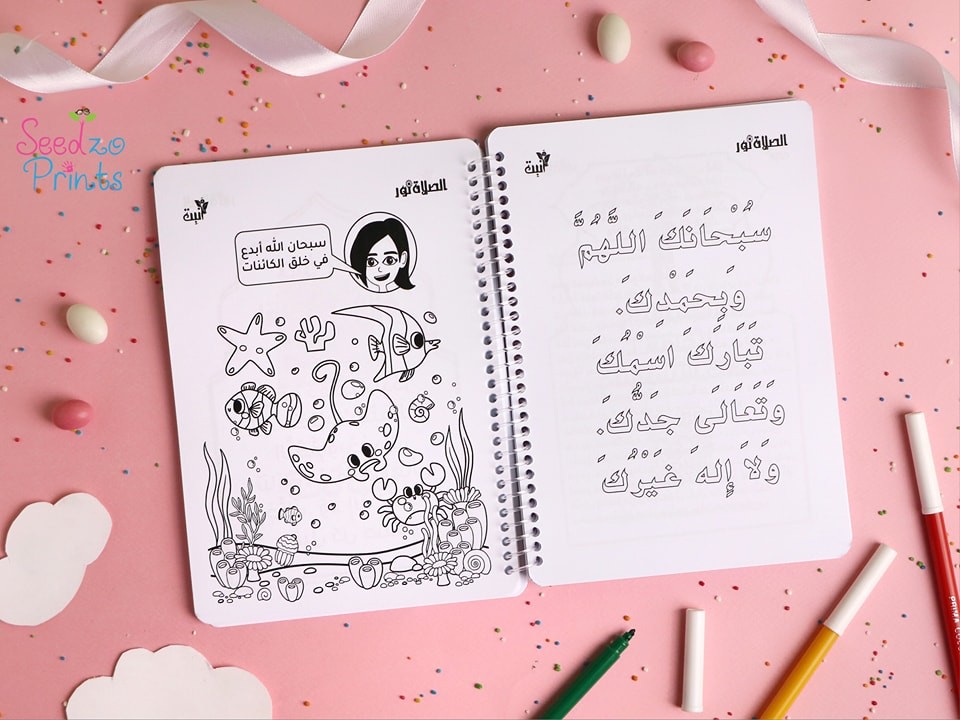 Seedzo
Prints
الصلاة نور
أنبت
سُبْحَانَكَ اللَّهُمَّ
وَبِحَمْدِكَ.
تَبَارَكَ اسْمُكَ
وَتَعَالَى جَدُّكَ.
وَلَا إِلهَ غَيْرُكَ
الصلاة نور
أنبت
سبحان الله أبدع
في خلق الكائنات